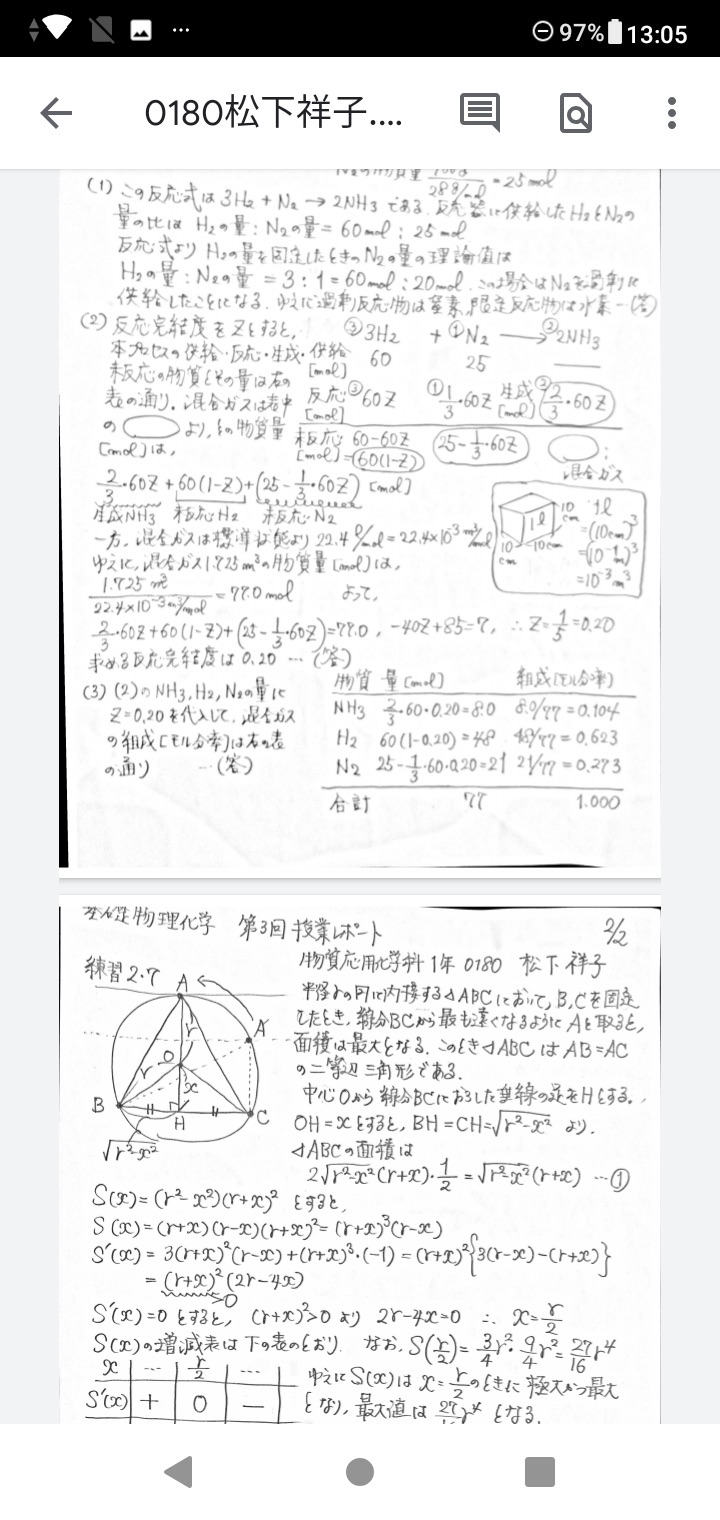 97% 13:05
0180松下祥子....
N₂の物質量 700g/28g/mol = 25mol
(1) この反応式は 3H₂ + N₂ → 2NH₃ である. 反応器に供給したH₂とN₂の
量の比は H₂の量 : N₂の量 = 60mol : 25mol
反応式より H₂の量を固定したときのN₂の量の理論値は
H₂の量 : N₂の量 = 3 : 1 = 60mol : 20mol. この場合はN₂を過剰に
供給したことになる. ゆえに過剰反応物は窒素, 限定反応物は水素…(答)
(2) 反応完結度をZとすると, ③3H₂ + ①N₂ → ②2NH₃
本プロセスの供給・反応・生成・ 供給 [mol] 60 25 —
未反応の物質とその量は右の 反応 [mol] ③60Z ①1/3・60Z 生成[mol] ②2/3・60Z
表の通り. 混合ガスは表中
の より, その物質量 未反応 [mol] 60-60Z =60(1-Z) 25-1/3・60Z ;
[mol]は, 混合ガス
2/3・60Z + 60(1-Z) + (25 - 1/3・60Z) [mol]
生成NH₃ 未反応H₂ 未反応N₂
1l 10cm 10cm 10cm 1l =(10cm)³ =(10⁻¹m)³ =10⁻³m³
一方, 混合ガスは標準状態より 22.4 l/mol = 22.4×10⁻³ m³/mol
ゆえに, 混合ガス1.725m³の物質量[mol]は,
1.725 m³/22.4×10⁻³m³/mol = 77.0mol よって,
2/3・60Z+60(1-Z)+(25-1/3・60Z)=77.0, -40Z+85=77, ∴ Z=1/5=0.20
求める反応完結度は 0.20 … (答)
(3) (2)のNH₃, H₂, N₂の量に
Z=0.20を代入して, 混合ガス
の組成[モル分率]は右の表
の通り …(答)
物質 量[mol] 組成[モル分率]
NH₃ 2/3・60・0.20=8.0 8.0/77=0.104
H₂ 60(1-0.20)=48 48/77=0.623
N₂ 25-1/3・60・0.20=21 21/77=0.273
合計 77 1.000
基礎物理化学 第3回 授業レポート 2/2
物質応用化学科 1年 0180 松下 祥子
練習2・7
A
A'
r
O
r
x
B
H
C
√r²-x²
半径rの円に内接する⊿ABCにおいて, B, Cを固定
したとき, 線分BCから最も遠くなるようにAを取ると,
面積は最大となる. このとき⊿ABCは AB=AC
の二等辺三角形である.
中心Oから線分BCにおろした垂線の足をHとする.
OH=xとすると, BH=CH=√r²-x² より.
⊿ABCの面積は
2√r²-x²(r+x)・1/2 = √r²-x²(r+x) …①
S(x)=(r²-x²)(r+x)² とすると,
S(x)=(r+x)(r-x)(r+x)²=(r+x)³(r-x)
S'(x)= 3(r+x)²(r-x)+(r+x)³・(-1) = (r+x)²{3(r-x)-(r+x)}
= (r+x)²(2r-4x)
>0
S'(x)=0とすると, (r+x)²>0 より 2r-4x=0 ∴ x=r/2
S(x)の増減表は下の表のとおり. なお, S(r/2)=3/4r²・9/4r²=27/16r⁴
x … r/2 …
S'(x) + 0 −
ゆえに S(x)は x=r/2 のときに極大かつ最大
となり, 最大値は 27/16r⁴ となる.